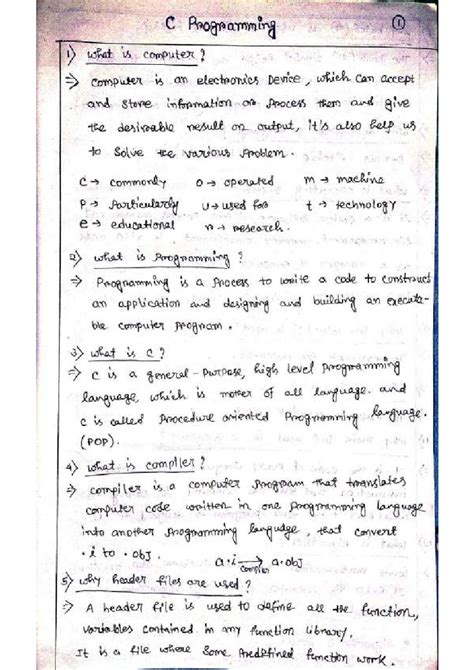 C Programming ①
1) What is computer ?
⇒ Computer is an electronics Device, which can accept
and store information or Process them and give
the desireable result on output, it's also help us
to Solve the various Problem.
C → commonly O → operated m → machine
P → Particularly U → used for t → technology
e → educational n → research.
2) What is Programming ?
⇒ Programming is a Process to write a code to construct
an application and designing and building an executa-
ble computer Program.
3) What is C ?
⇒ C is a general-Purpose, high level Programming
language, which is mother of all language. and
C is called Procedure oriented Programming language.
(POP).
4) What is compiler ?
⇒ Compiler is a computer Program that translates
computer code written in one Programming language
into another Programming language, that convert
.i to .obj. a.i → a.obj
compiler
5) Why header files are used ?
⇒ A header file is used to define all the function,
variables contained in any function library.
It is a file where Some Predefined function work.